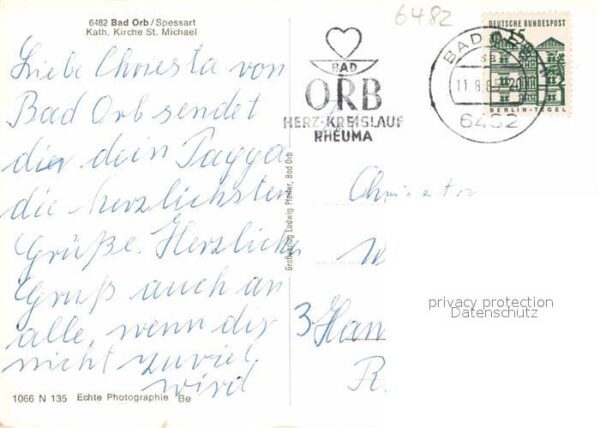 6482 Bad Orb / Spessart
Kath. Kirche St. Michael
Liebe Christa von
Bad Orb sendet
dir dein Pappa
die herzlichsten
Grüße. Herzlichen
Gruß auch an
alle, wenn dir
nicht zuviel
wird
1066 N 135 Echte Photographie Be
Großverlag Ludwig Pfeifer, Bad Orb
6482
BAD
ORB
HERZ·KREISLAUF
RHEUMA
BAD ORB
11.8.65-20
6482
DEUTSCHE BUNDESPOST
15
BERLIN-TEGEL
3 Han
R.
privacy protection
Datenschutz